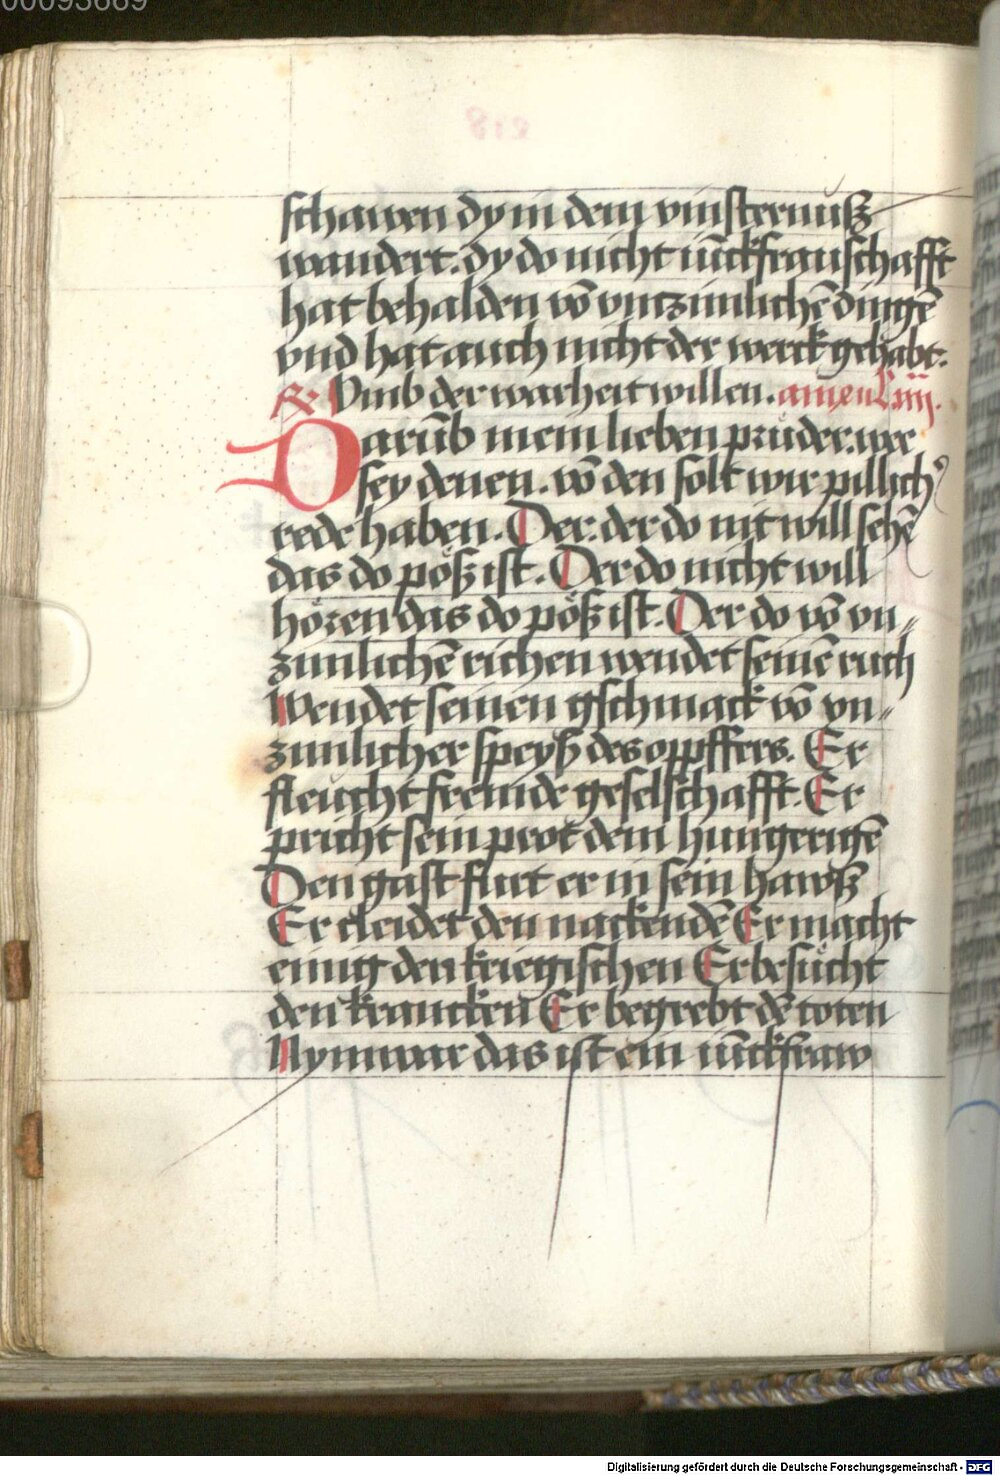 00093689
schawen dy in dem vinsternuß
wandert. dy do nicht iūckfrauschafft
hat behalden vō vntzimlichē dingē
vnd hat auch nicht der werck gehabt.
R. Vmb der warheit willen. amen
Darūb mein lieben prüder. wer
sey denen. vō den solt wir pillich
rede haben. Der. der do nit will sehē
das do pöß ist. Der do nicht will
hören das do pöß ist. Der do vō vn„
zimlichē richen wendet seinē ruch
Wendet seinen gschmack vō vn„
zimlicher speyß des oppffers. Er
fleucht fremde geselschafft. Er
pricht sein prot dem hungerigē
Den gast furt er in sein hawß
Er cleidet den nackendē Er macht
einig den kriegischen Er besücht
den krancken Er begrebt dē toten
Nym war das ist ein iūckfraw
Digitalisierung gefördert durch die Deutsche Forschungsgemeinschaft - DFG